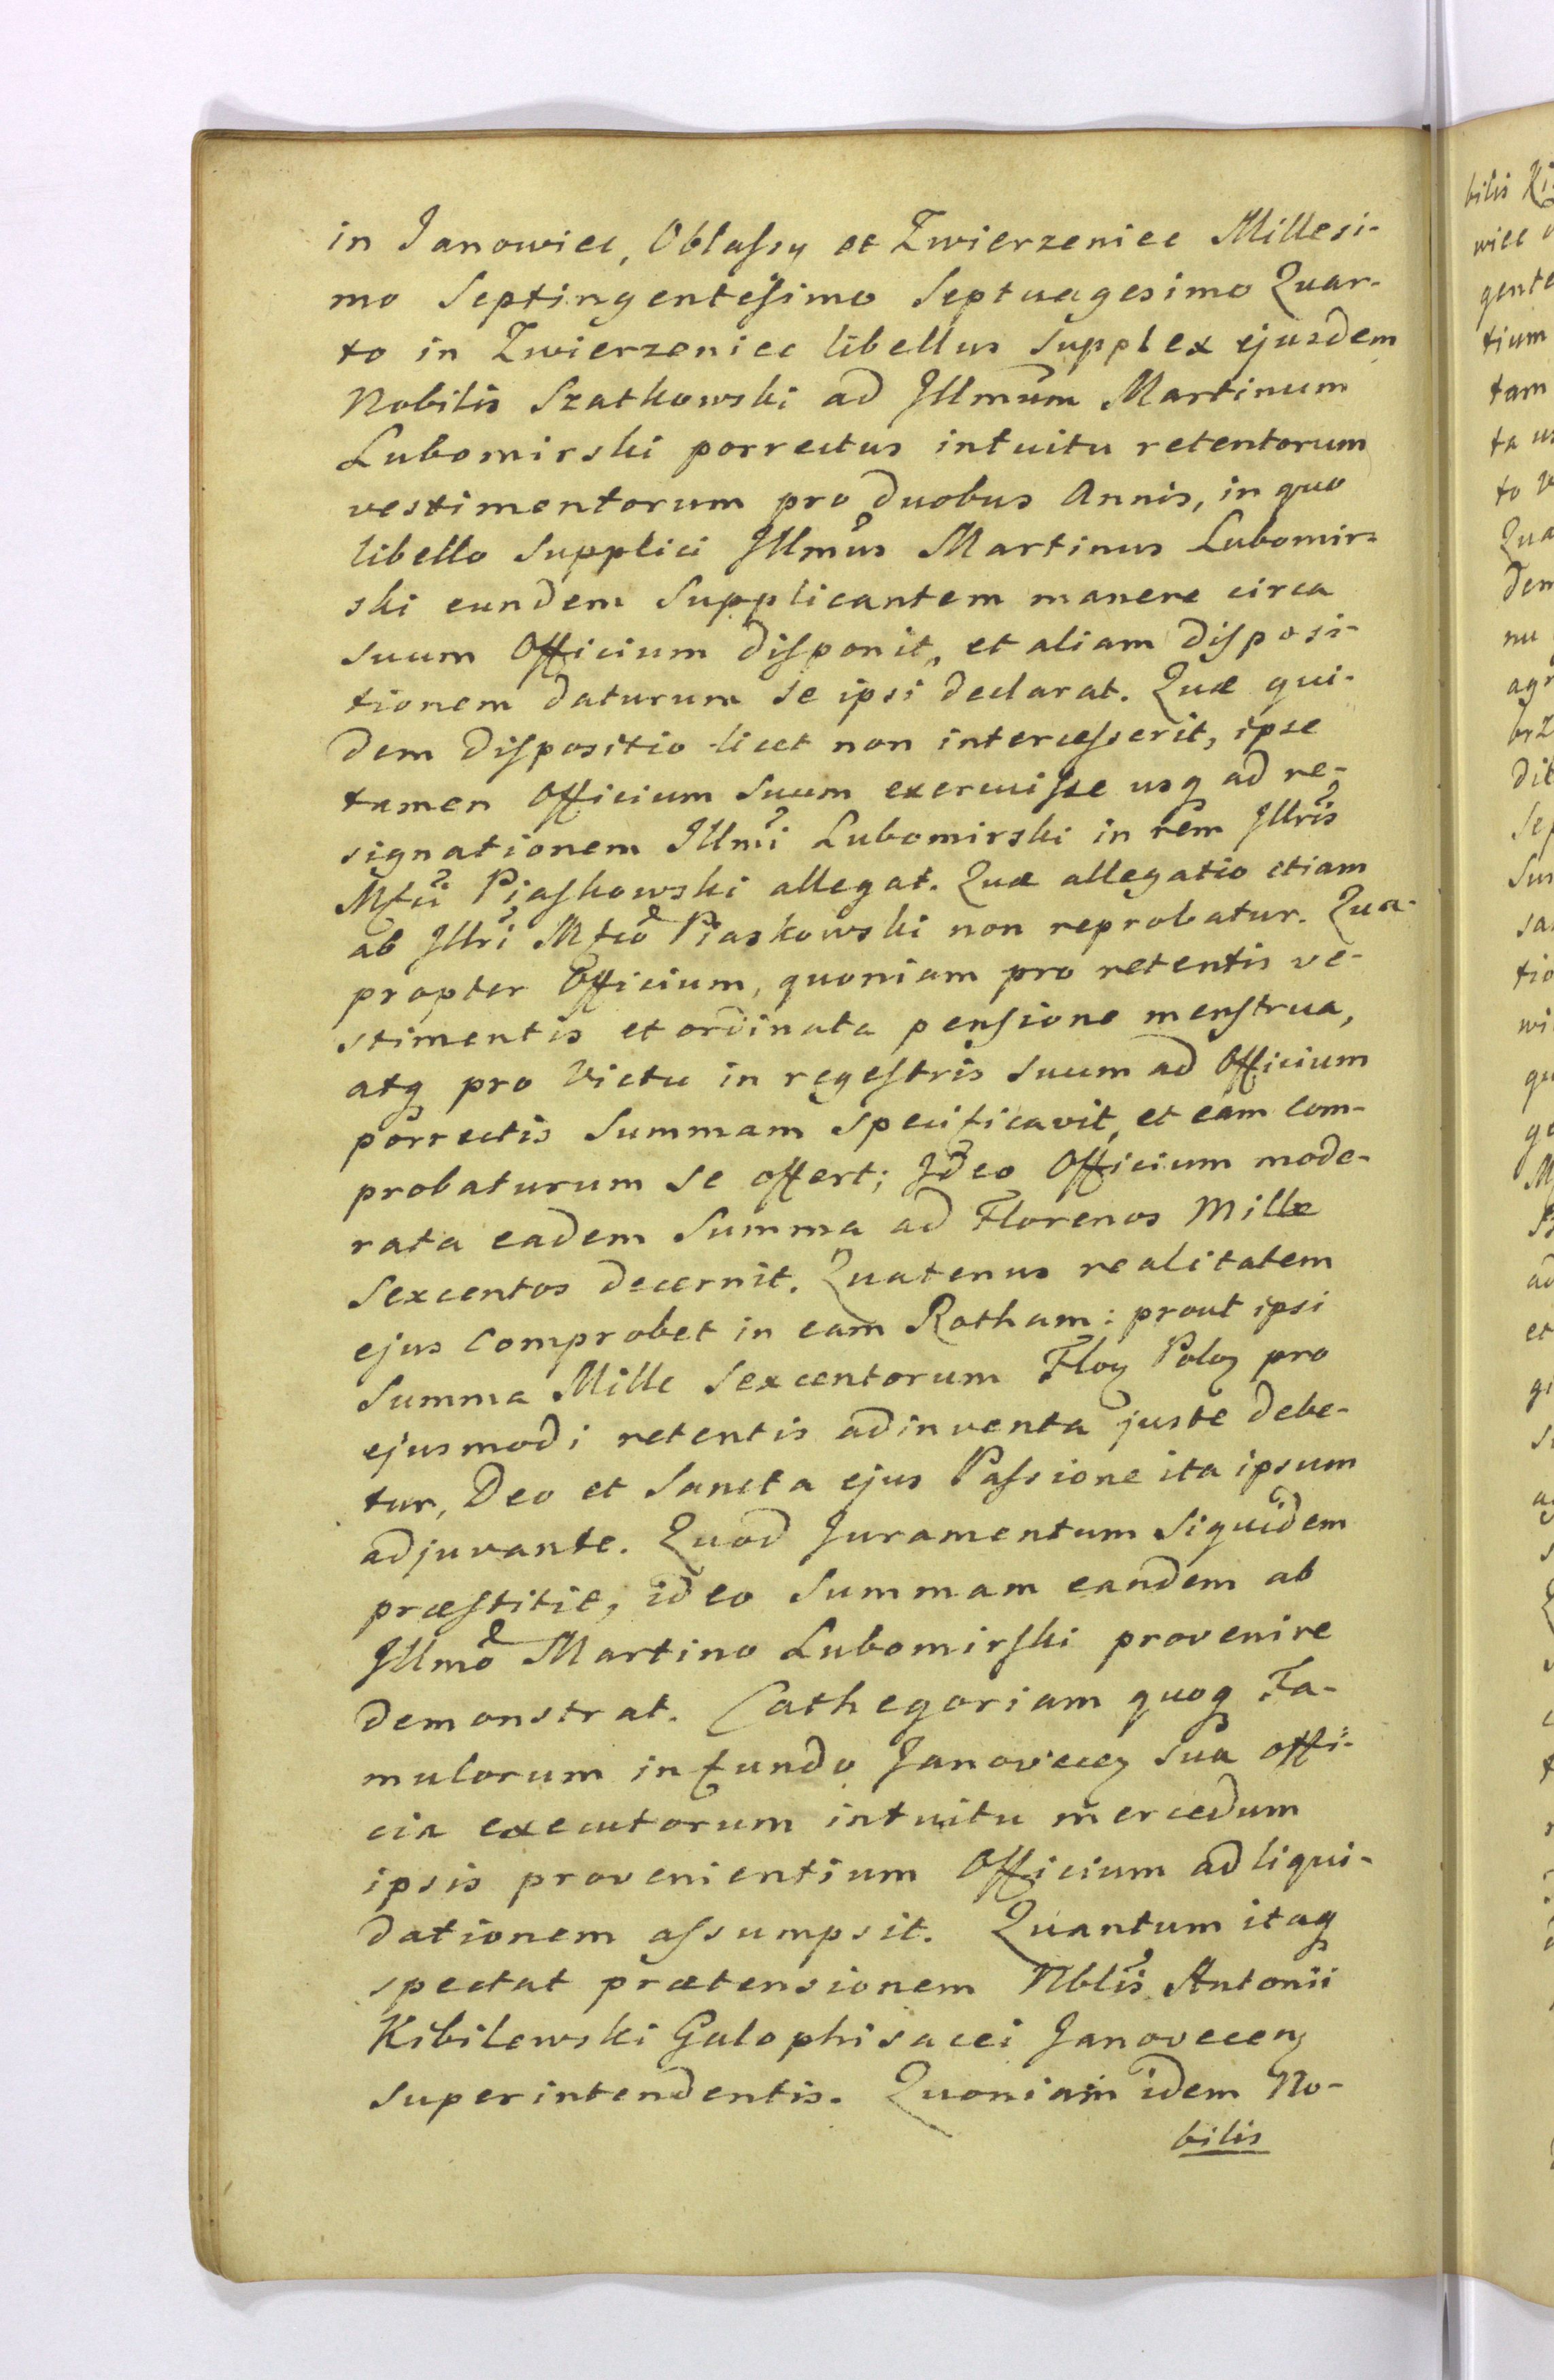 in Janowiec, Oblassy et Zwierzeniec Millesi-
mo Septingentesimo Septuagesimo Quar-
to in Zwierzeniec libellus Supplex ejusdem
Nobilis Szatkowski ad Illmum Martinum
Lubomirski porrectus intuitu retentorum
vestimentorum pro duobus Annis, in quo
libello Supplici Illmus Martinus Lubomir-
ski eundem Supplicantem manere circa
suum Officium disponit, et aliam disposi-
tionem daturum se ipsi declarat. Quæ qui-
dem dispositio licet non intercesserit, ipse
tamen Officium Suum exercuisse usq ad re-
signationem Illmi Lubomirski in rem Illris
Mfci Piaskowski allegat. Quæ allegatio etiam
ab Illri Mfco Piaskowski non reprobatur. Qua-
propter Officium, quoniam pro retentis ve-
stimentis et ordinata pensione menstrua,
atq pro Victu in regestris suum ad Officium
porrectis Summam specificavit, et eam com-
probaturum se offert; Ideo Officium mode-
rata eadem Summa ad Florenos Mille
Sexcentos decernit. Quatenus realitatem
ejus Comprobet in eam Rotham: prout ipsi
Summa Mille Sexcentorum Floz Poloz pro
ejusmodi retentis adinventa juste debe-
tur, Deo et Sancta ejus Passione ita ipsum
adjuvante. Quod Juramentum Siquidem
præstitit, ideo Summam eandem ab
Illmo Martino Lubomirski provenire
demonstrat. Cathegoriam quoq Fa-
mulorum in fundo Janovecez sua offi-
cia executorum intuitu mercedum
ipsis provenientium Officium ad liqui-
dationem assumpsit. Quantum itaq
spectat prætensionem Nblis Antonii
Kibilewski Galophisacei Janovecenz
superintendentis. Quoniam idem No-
bilis